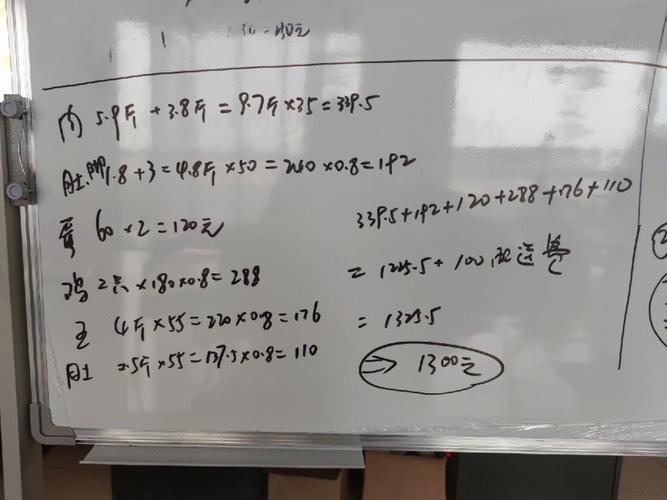 =110元
肉 5.9斤 + 3.8斤 = 9.7斤 × 35 = 339.5
肚.脚 1.8 + 3 = 4.8斤 × 50 = 240 × 0.8 = 192
60 × 2 = 120元
鸡 2只 × 180 × 0.8 = 288
4斤 × 55 = 220 × 0.8 = 176
肚 2.5斤 × 55 = 137.5 × 0.8 = 110
339.5 + 192 + 120 + 288 + 176 + 110
= 1225.5 + 100 运费
= 1325.5
⇒ 1300元